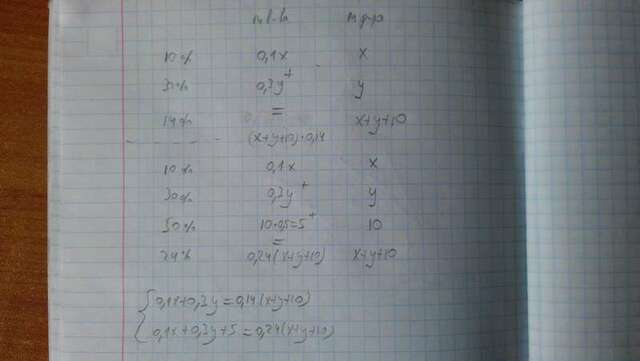 m в-ва m р-ра
10% 0,1x x
30% 0,3y + y
=
14% x+y+10
(x+y+10)·0,14
10% 0,1x x
30% 0,3y + y
50% 10·0,5=5 + 10
=
24% 0,24(x+y+10) x+y+10
0,1x+0,3y=0,14(x+y+10)
0,1x+0,3y+5=0,24(x+y+10)